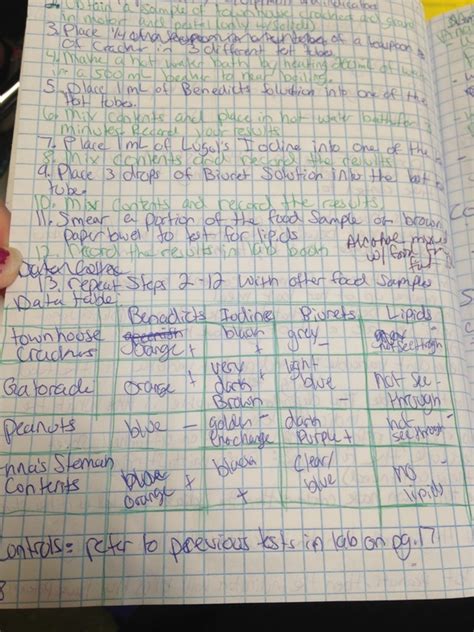 2. Obtain a sample of townhouse crackers and grind
in mortar and pestel
3. Place of a teaspoon
of cracker in 3 different test tubes
4. Make a hot water bath by heating of water
in a 500 mL beaker to near boiling.
5. Place 1mL of Benedicts Solution into one of the
test tubes.
6. Mix contents and place in hot water bath for 3
minutes. Record your results
7. Place 1mL of Lugol's Iodine into one of the
8. Mix contents and record the results
9. Place 3 drops of Biuret Solution into the
tube.
10. Mix contents and record the results
11. Smear a portion of the food sample on brown
paper towel to test for lipids
12. Record the results in lab book
Alcohol mixed
w/
Data
13. repeat Steps 2-12 with other food samples
Data table:
Benadicts Iodine Biurets Lipids
townhouse
Crackers orange + black + grey - not see through
Gatorade orange + very dark Brown + light blue - not see - through
Peanuts blue - golden - no change dark Purple + not see through -
Contents blue orange + black + Clear/ blue NO lipids
Controls = refer to previous tests in lab on pg. 17
8